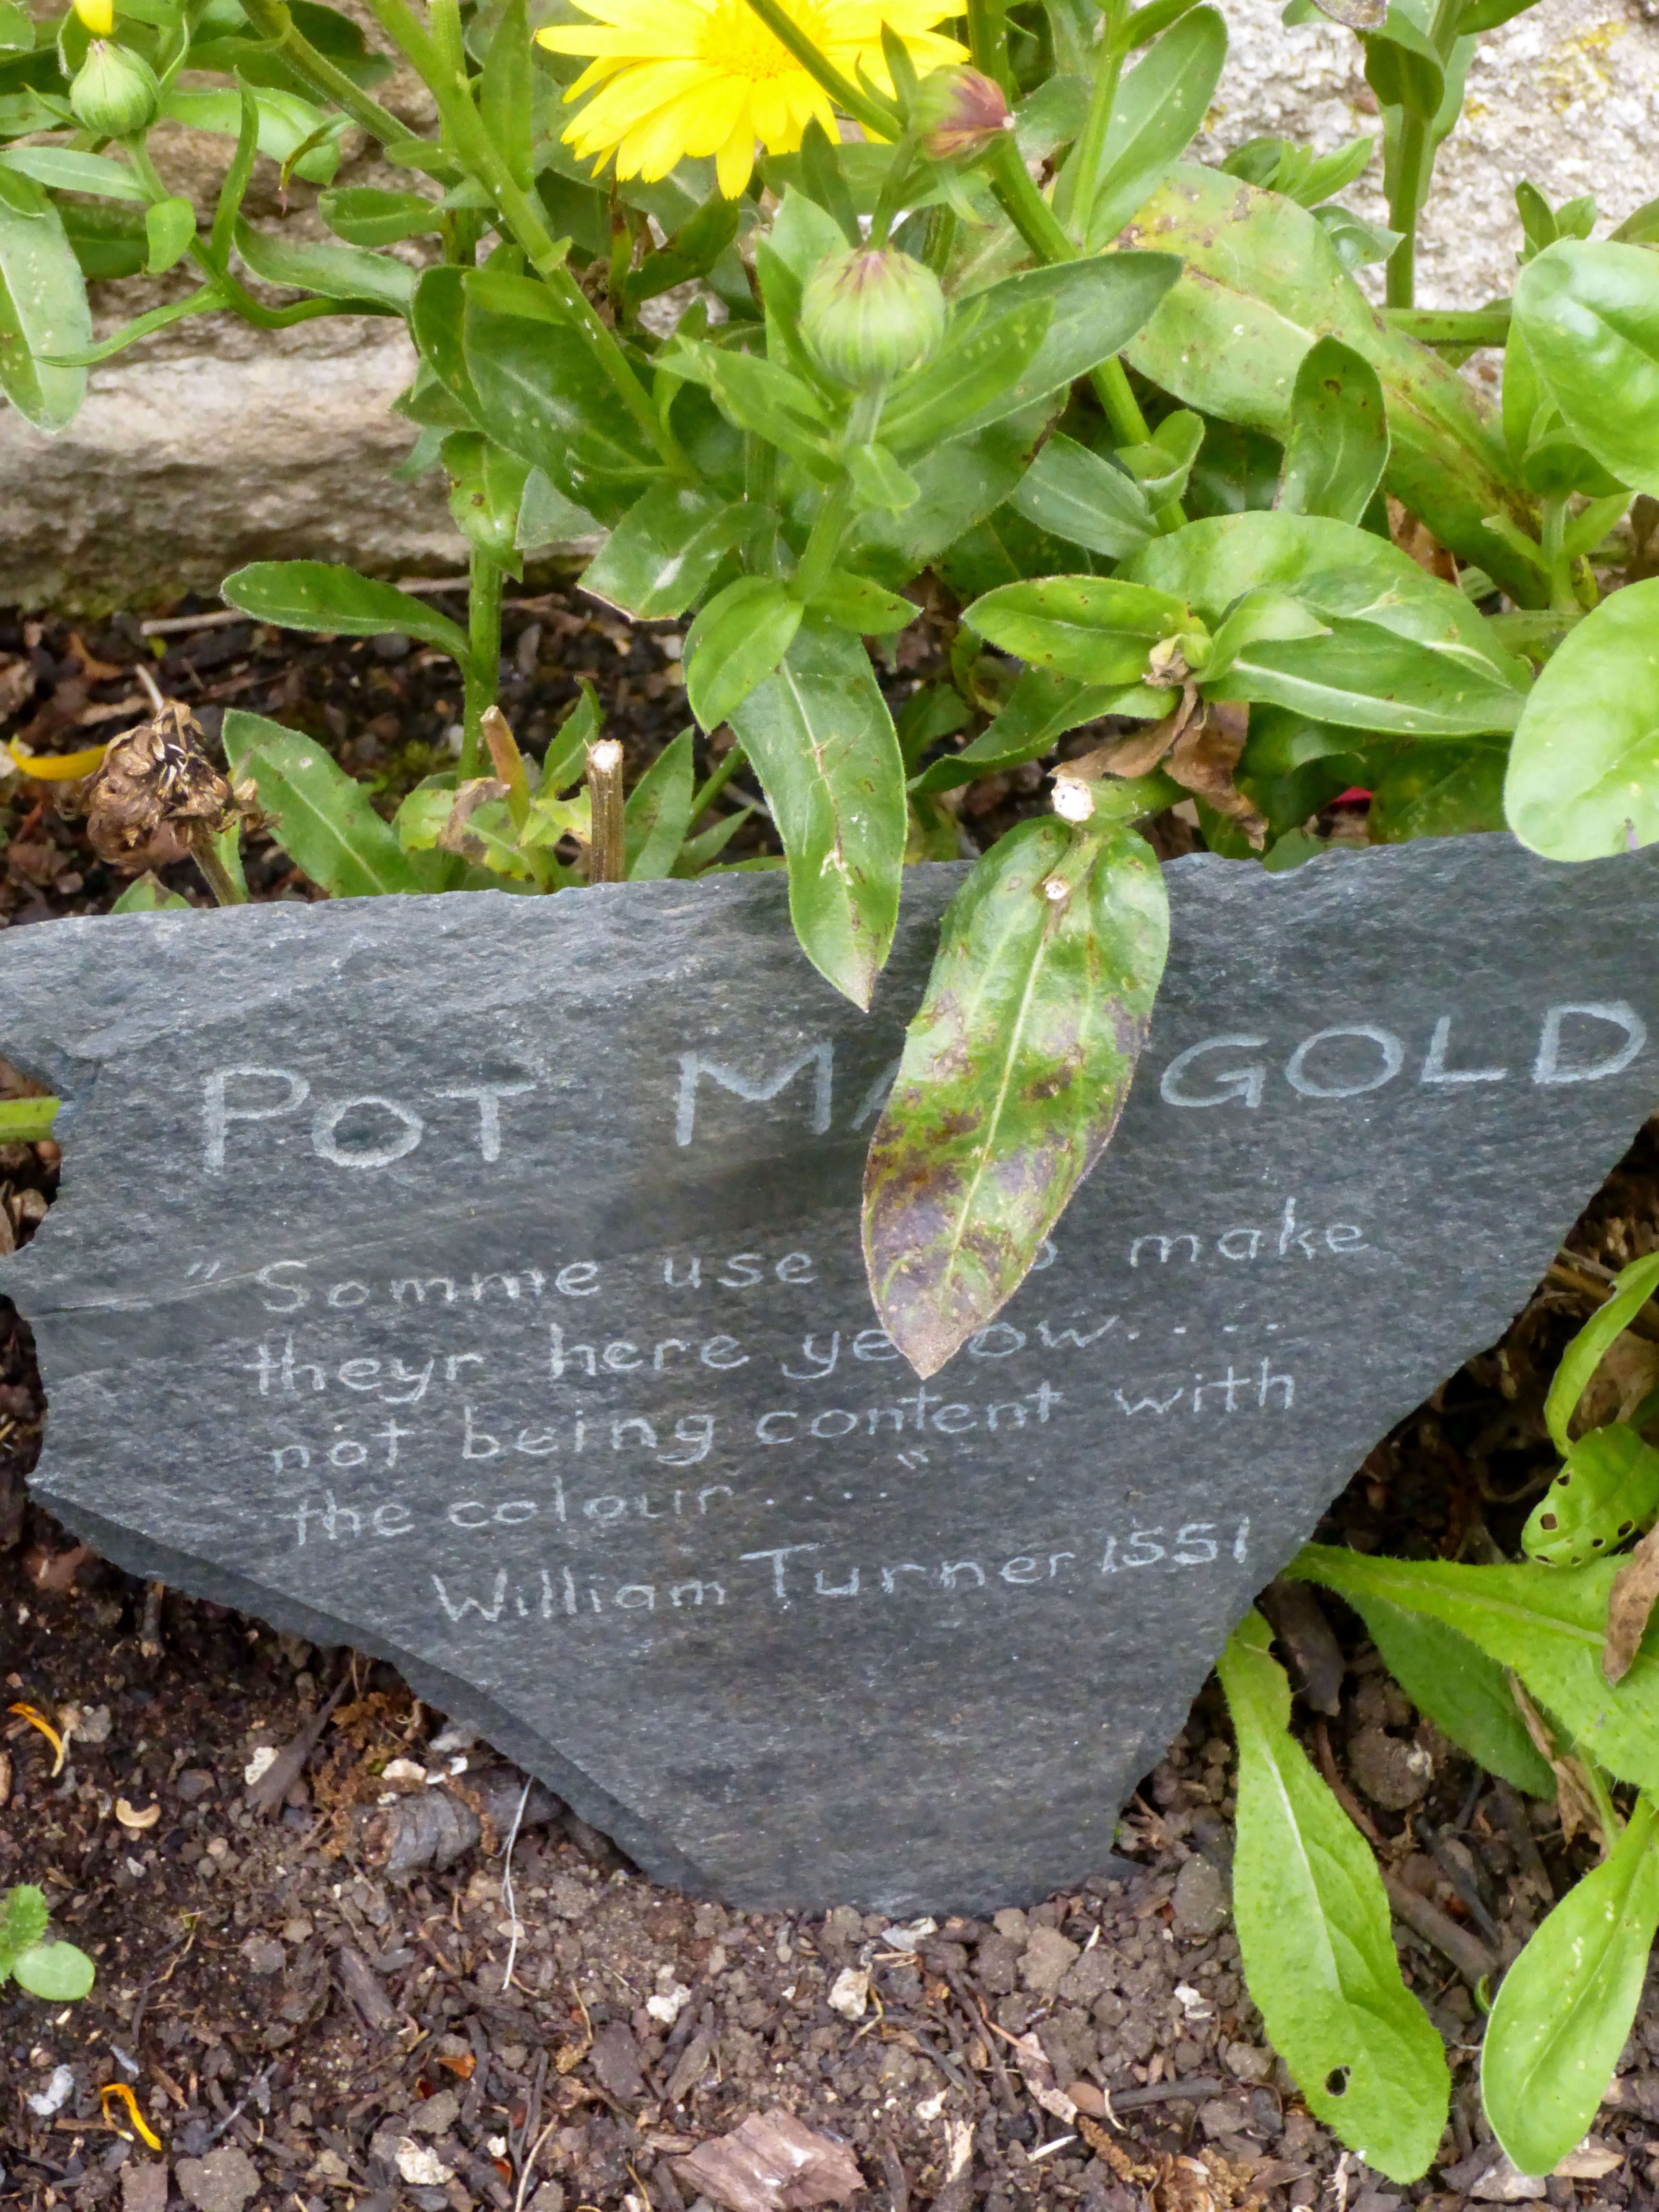 POT MARIGOLD
" Somme use to make
theyr here yellow.....
not being content with
the colour ..... "
William Turner 1551